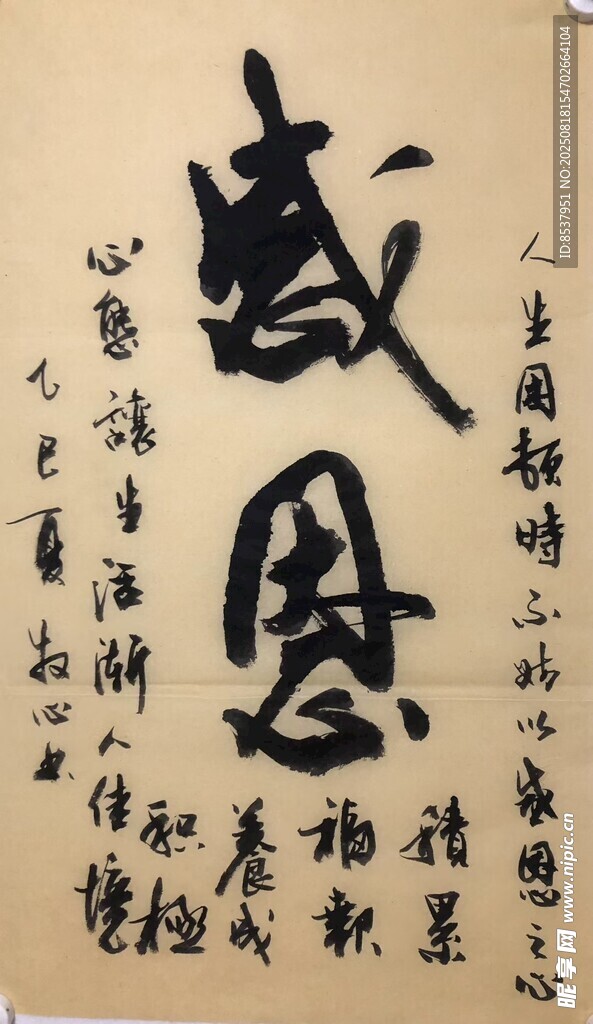 感恩
人生困頓時不妨以感恩之心
積累
福報
養成
积極
心態讓生活漸入佳境
乙巳夏牧心書
ID:8537951 NO:20250818154702664104
昵享网 www.nipic.cn